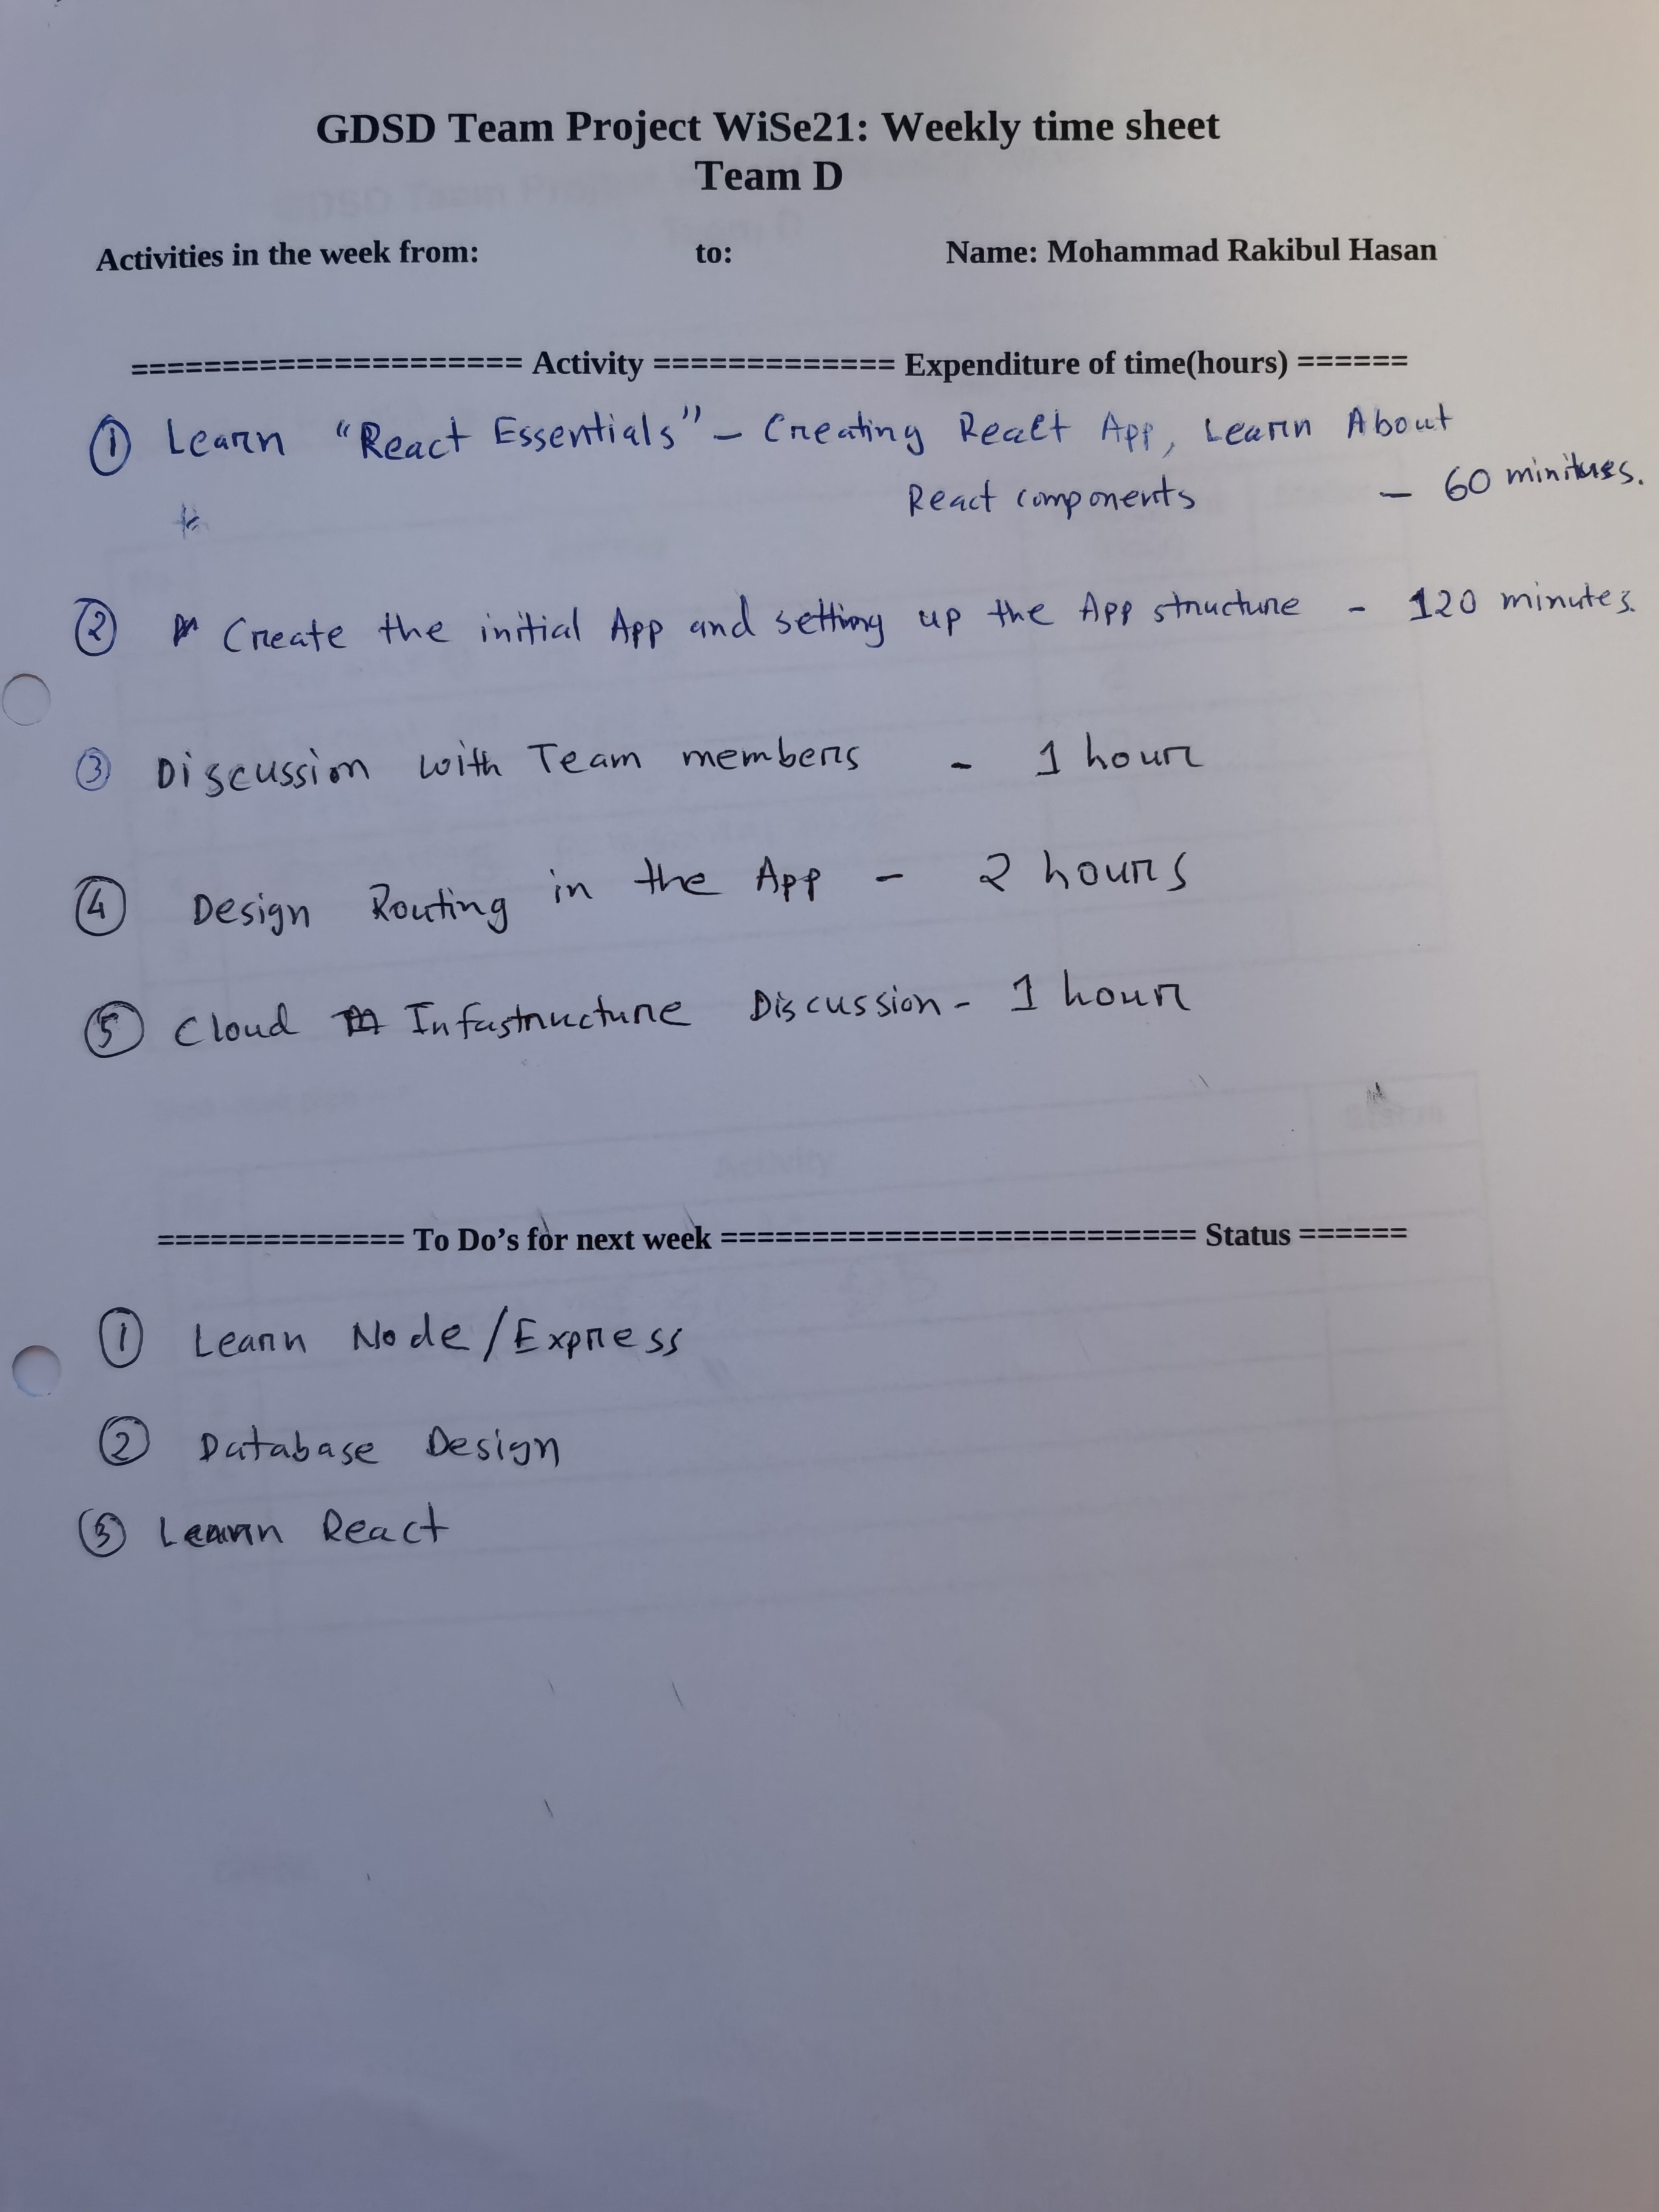 GDSD Team Project WiSe21: Weekly time sheet
Team D
Activities in the week from: to: Name: Mohammad Rakibul Hasan
===================== Activity ============= Expenditure of time(hours) ======
① Learn “React Essentials” – Creating React App, Learn About
React components – 60 minitues.
② Create the initial App and setting up the App structure - 120 minutes.
③ Discussion with Team members - 1 hour
④ Design Routing in the App - 2 hours
⑤ Cloud Infastructure Discussion - 1 hour
============== To Do’s for next week ========================== Status ======
① Learn Node/Express
② Database Design
③ Learn React